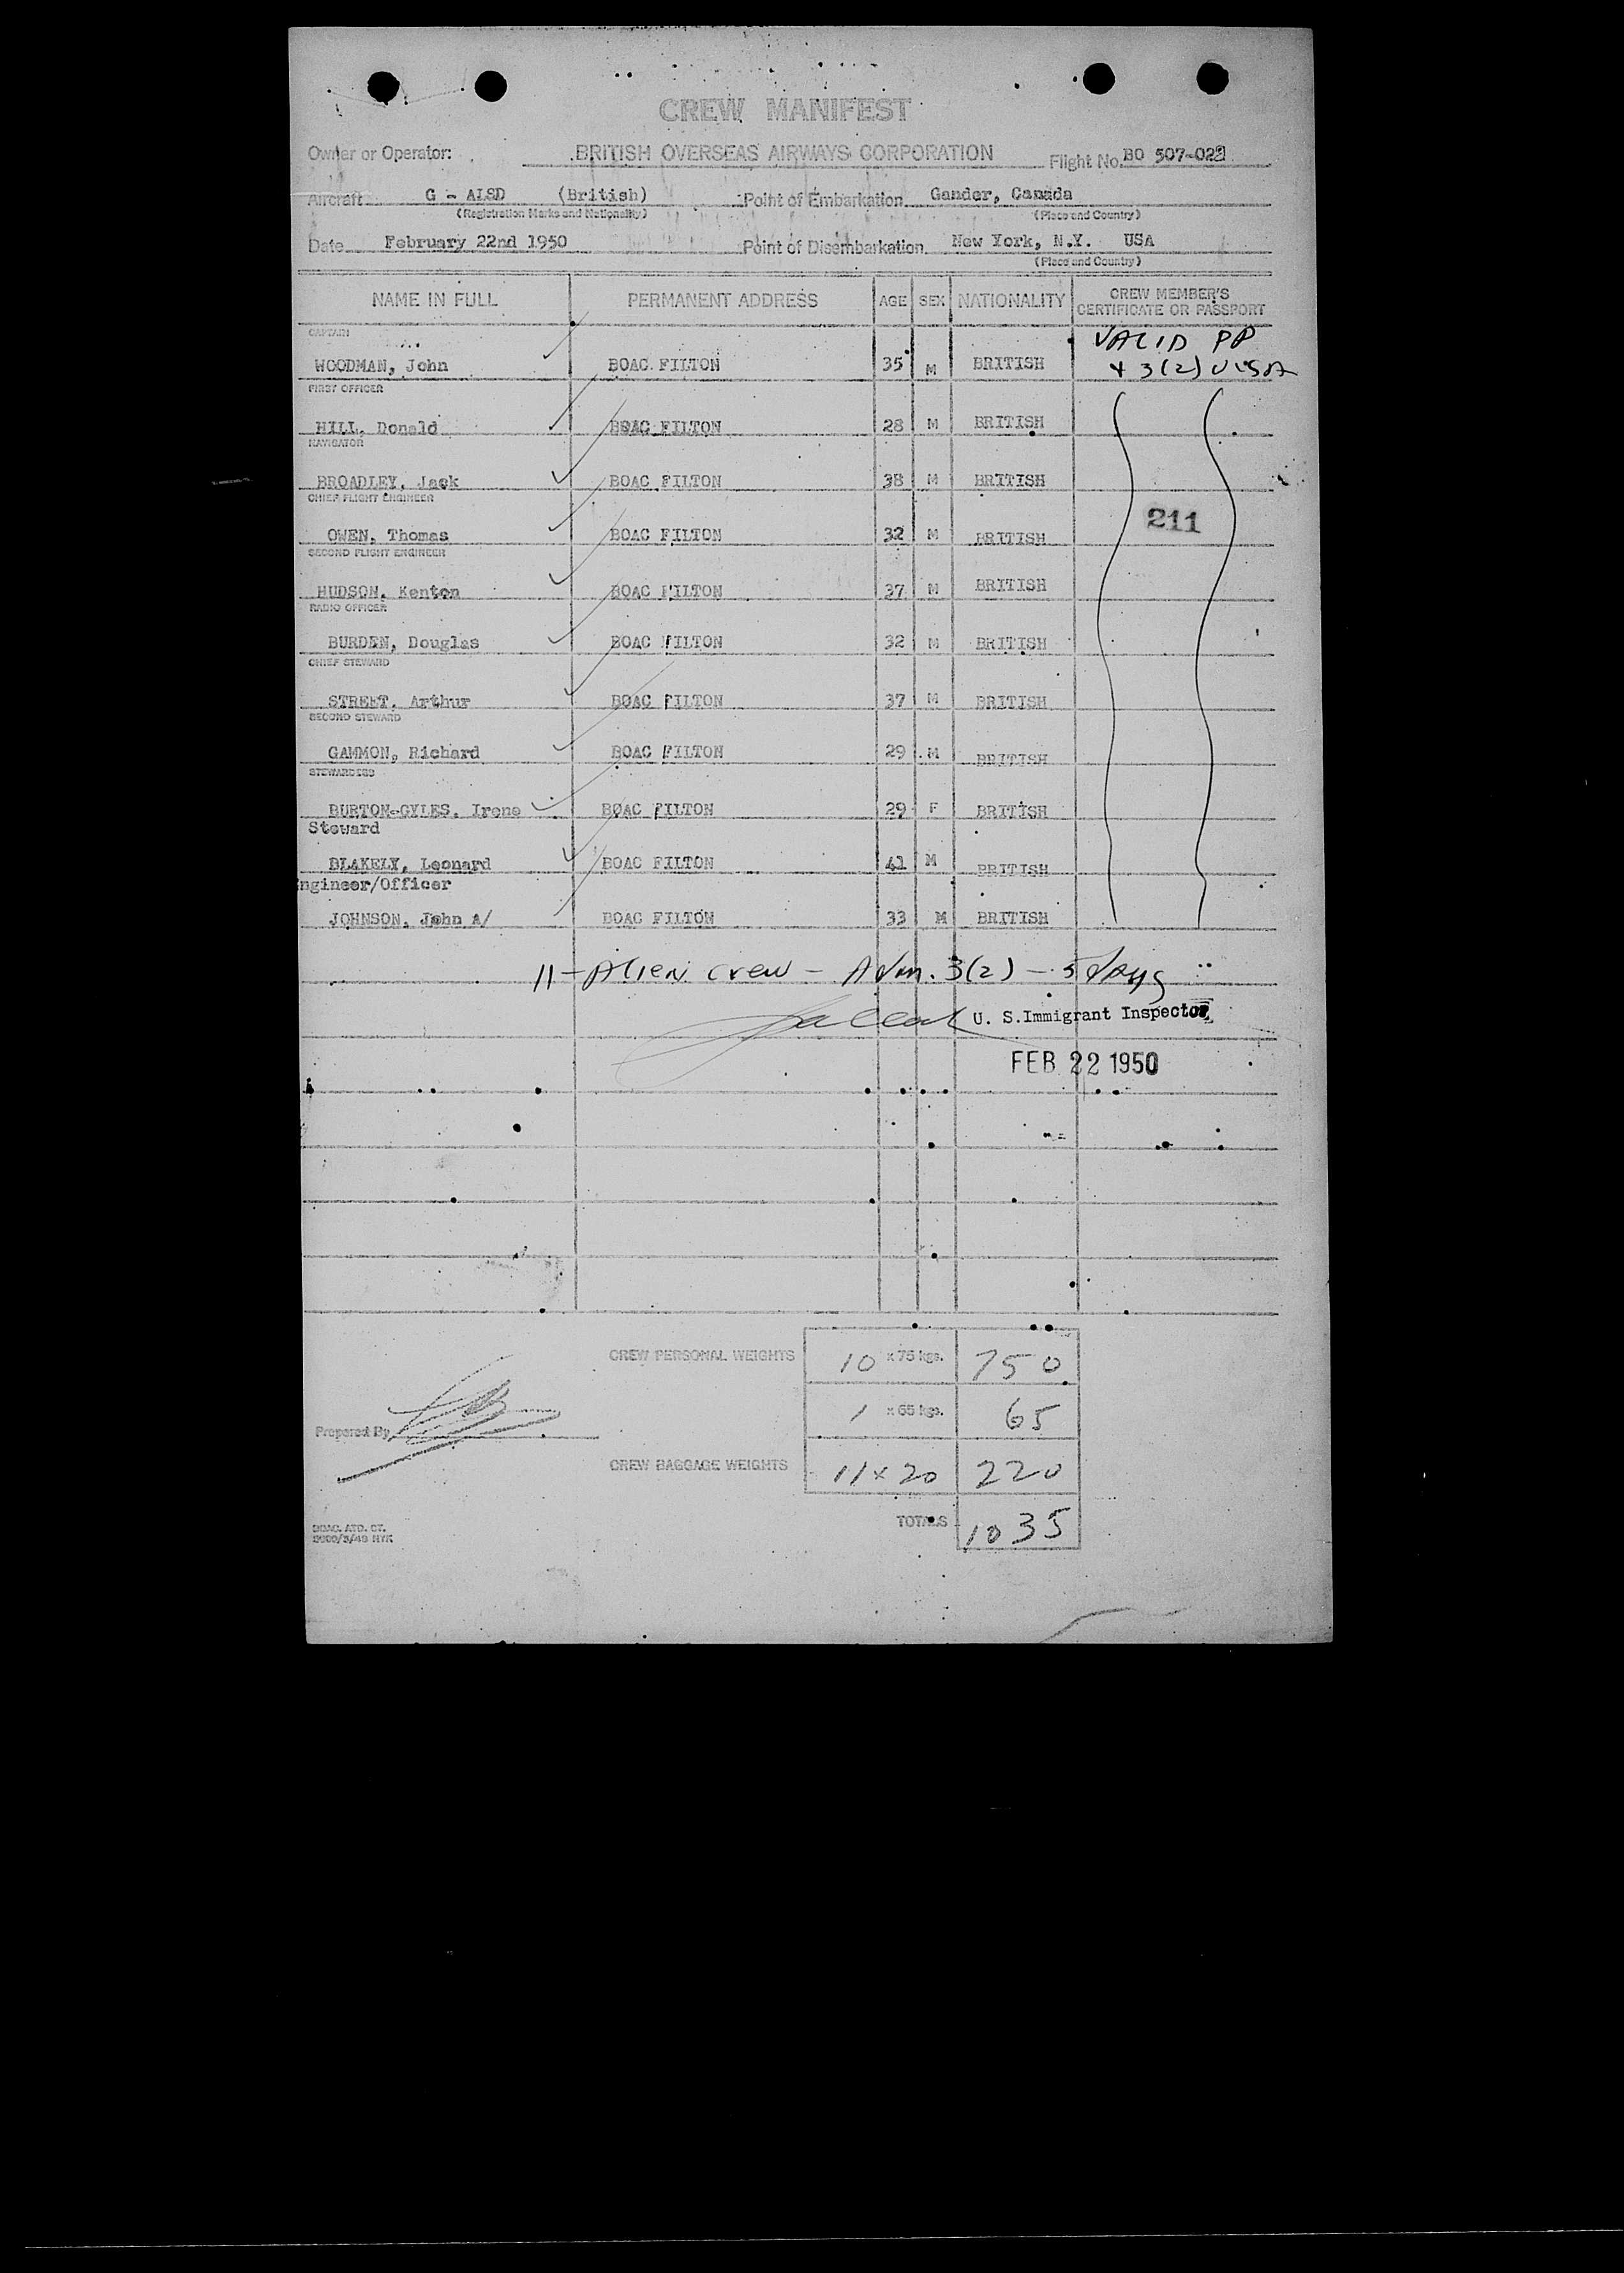 CREW MANIFEST
Owner or Operator: BRITISH OVERSEAS AIRWAYS CORPORATION Flight No. BO 507-022
Aircraft G - ALSD (British) Point of Embarkation Gander, Canada
(Registration Marks and Nationality) (Place and Country)
Date February 22nd 1950 Point of Disembarkation New York, N.Y. USA
(Place and Country)
NAME IN FULL PERMANENT ADDRESS AGE SEX NATIONALITY CREW MEMBER'S CERTIFICATE OR PASSPORT
CAPTAIN
WOODMAN, John BOAC FILTON 35 M BRITISH VALID PP + 3(2) VISA
FIRST OFFICER
HILL, Donald BOAC FILTON 28 M BRITISH
NAVIGATOR
BROADLEY, Jack BOAC FILTON 38 M BRITISH
CHIEF FLIGHT ENGINEER
OWEN, Thomas BOAC FILTON 32 M BRITISH 211
SECOND FLIGHT ENGINEER
HUDSON, Kenton BOAC FILTON 37 M BRITISH
RADIO OFFICER
BURDEN, Douglas BOAC FILTON 32 M BRITISH
CHIEF STEWARD
STREET, Arthur BOAC FILTON 37 M BRITISH
SECOND STEWARD
GAMMON, Richard BOAC FILTON 29 M BRITISH
STEWARDESS
BURTON-GYLES, Irene BOAC FILTON 29 F BRITISH
Steward
BLAKELY, Leonard BOAC FILTON 41 M BRITISH
ngineer/Officer
JOHNSON, John A/ BOAC FILTON 33 M BRITISH
11 - Alien crew - Adm. 3(2) - 5 days
U. S. Immigrant Inspector
FEB 22 1950
CREW PERSONAL WEIGHTS 10 x 75 kgs. 750
1 x 65 kgs. 65
Prepared By
CREW BAGGAGE WEIGHTS 11 x 20 220
TOTALS 1035